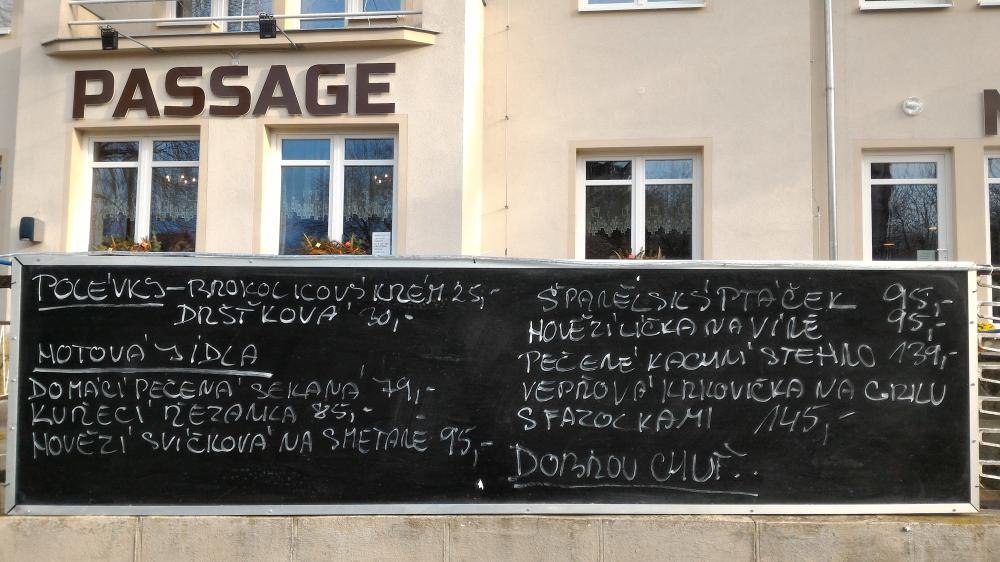 PASSAGE
POLÉVKY - BROKOLICOVÝ KRÉM 25,-
DRŠŤKOVÁ 30,-
HOTOVÁ JÍDLA
DOMÁCÍ PEČENÁ SEKANÁ 79,-
KUŘECÍ ŘEZANKA 85,-
HOVĚZÍ SVÍČKOVÁ NA SMETANĚ 95,-
ŠPANĚLSKÝ PTÁČEK 95,-
HOVĚZÍ LÍČKA NA VÍNĚ 95,-
PEČENÉ KACHNÍ STEHNO 139,-
VEPŘOVÁ KRKOVIČKA NA GRILU
S FAZOLKAMI 145,-
DOBROU CHUŤ..